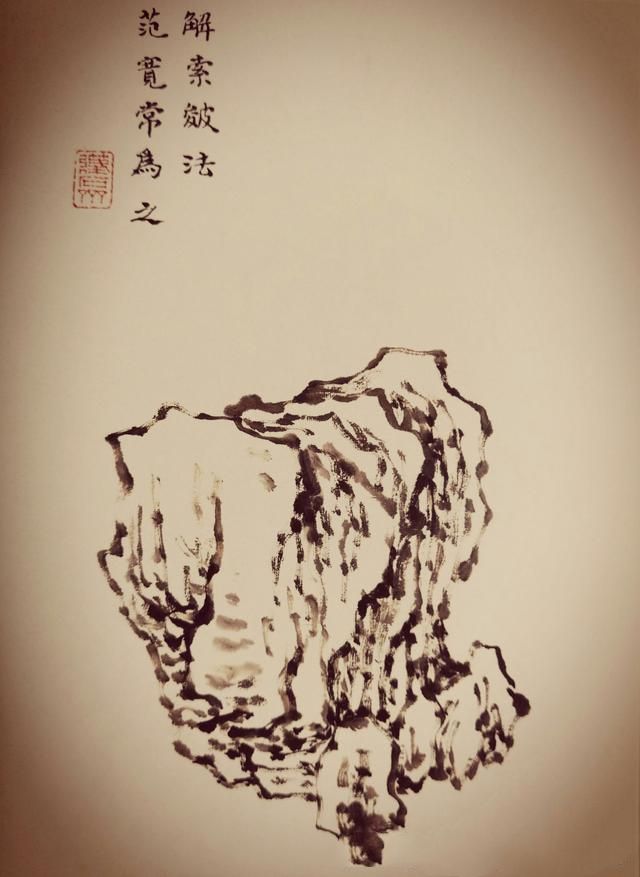 解索皴法
范寬常為之